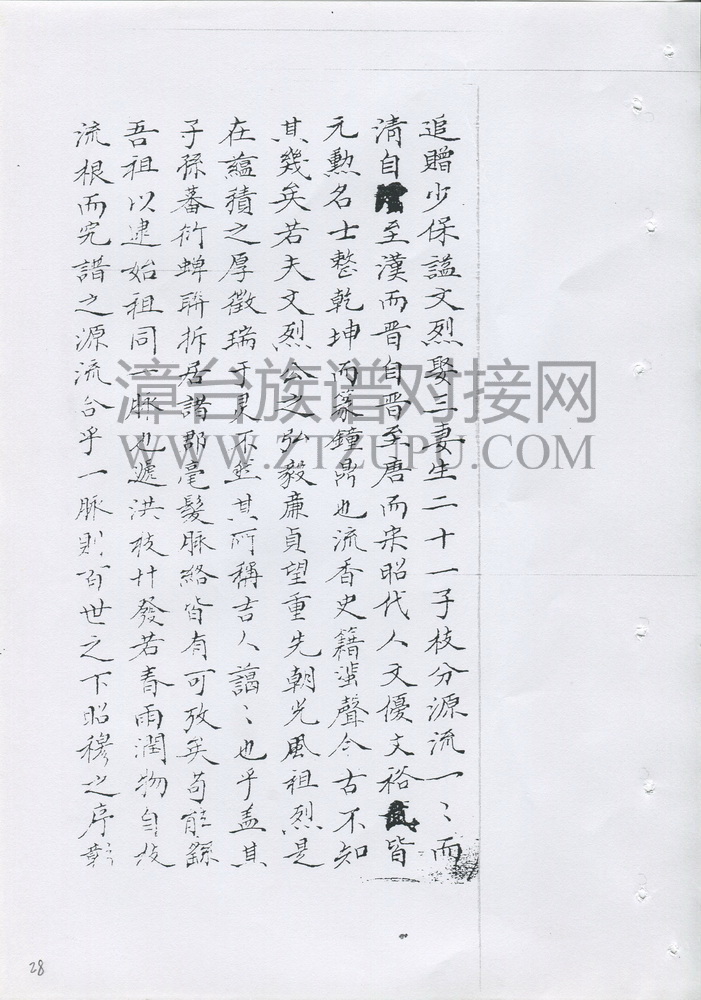 追贈少保謚文烈娶三妻生二十一子枝分源流一〻而
清自至漢而晋自晋至唐而宋昭代人文優文裕皆
元勲名士整乾坤而篆鐘鼎也流香史籍蜚聲今古不知
其幾矣若夫文烈公之弘毅亷貞望重先朝光風祖烈是
在蘊積之厚徵瑞于灵不然其所稱吉人藹〻也乎盖其
子孫蕃衍蟬聨拆居諸郡毫髮脉絡皆有可攷矣苟能繇
吾祖以逮始祖同一脉也遞洪枝廾發若春雨潤物自枝
流根而完譜之源流合乎一脉則百世之下昭穆之序彰
漳台族谱对接网
WWW.ZTZUPU.COM
28